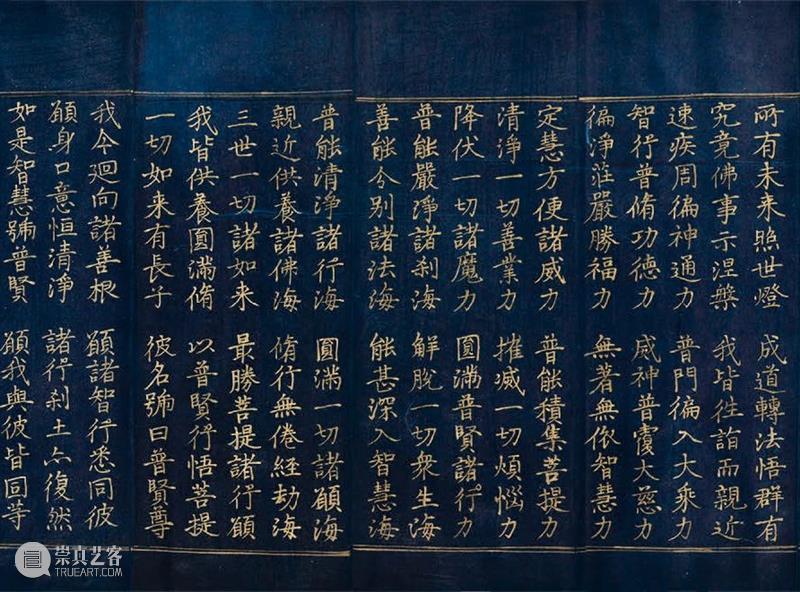 所有未来照世燈 成道轉法悟群有
究竟佛事示涅槃 我皆往詣而親近
速疾周徧神通力 普門徧入大乘力
智行普脩功德力 威神普覆大慈力
徧淨莊嚴勝福力 無著無依智慧力
定慧方便諸威力 普能積集菩提力
清淨一切善業力 摧滅一切煩惱力
降伏一切諸魔力 圓滿普賢諸行力
普能嚴淨諸刹海 解脫一切衆生海
善能分別諸法海 能甚深入智慧海
普能清淨諸行海 圓滿一切諸願海
親近供養諸佛海 脩行無倦經劫海
三世一切諸如来 最勝菩提諸行願
我皆供養圓滿脩 以普賢行悟菩提
一切如来有長子 彼名號曰普賢尊
我今廻向諸善根 願諸智行悉同彼
願身口意恒清淨 諸行刹土亦復然
如是智慧號普賢 願我與彼皆同等
崇真艺客
TRUEART.COM